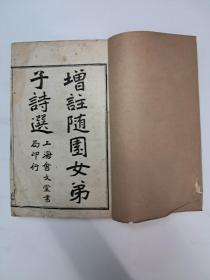 增註随園女弟
子詩選
上海會文堂書
局印行